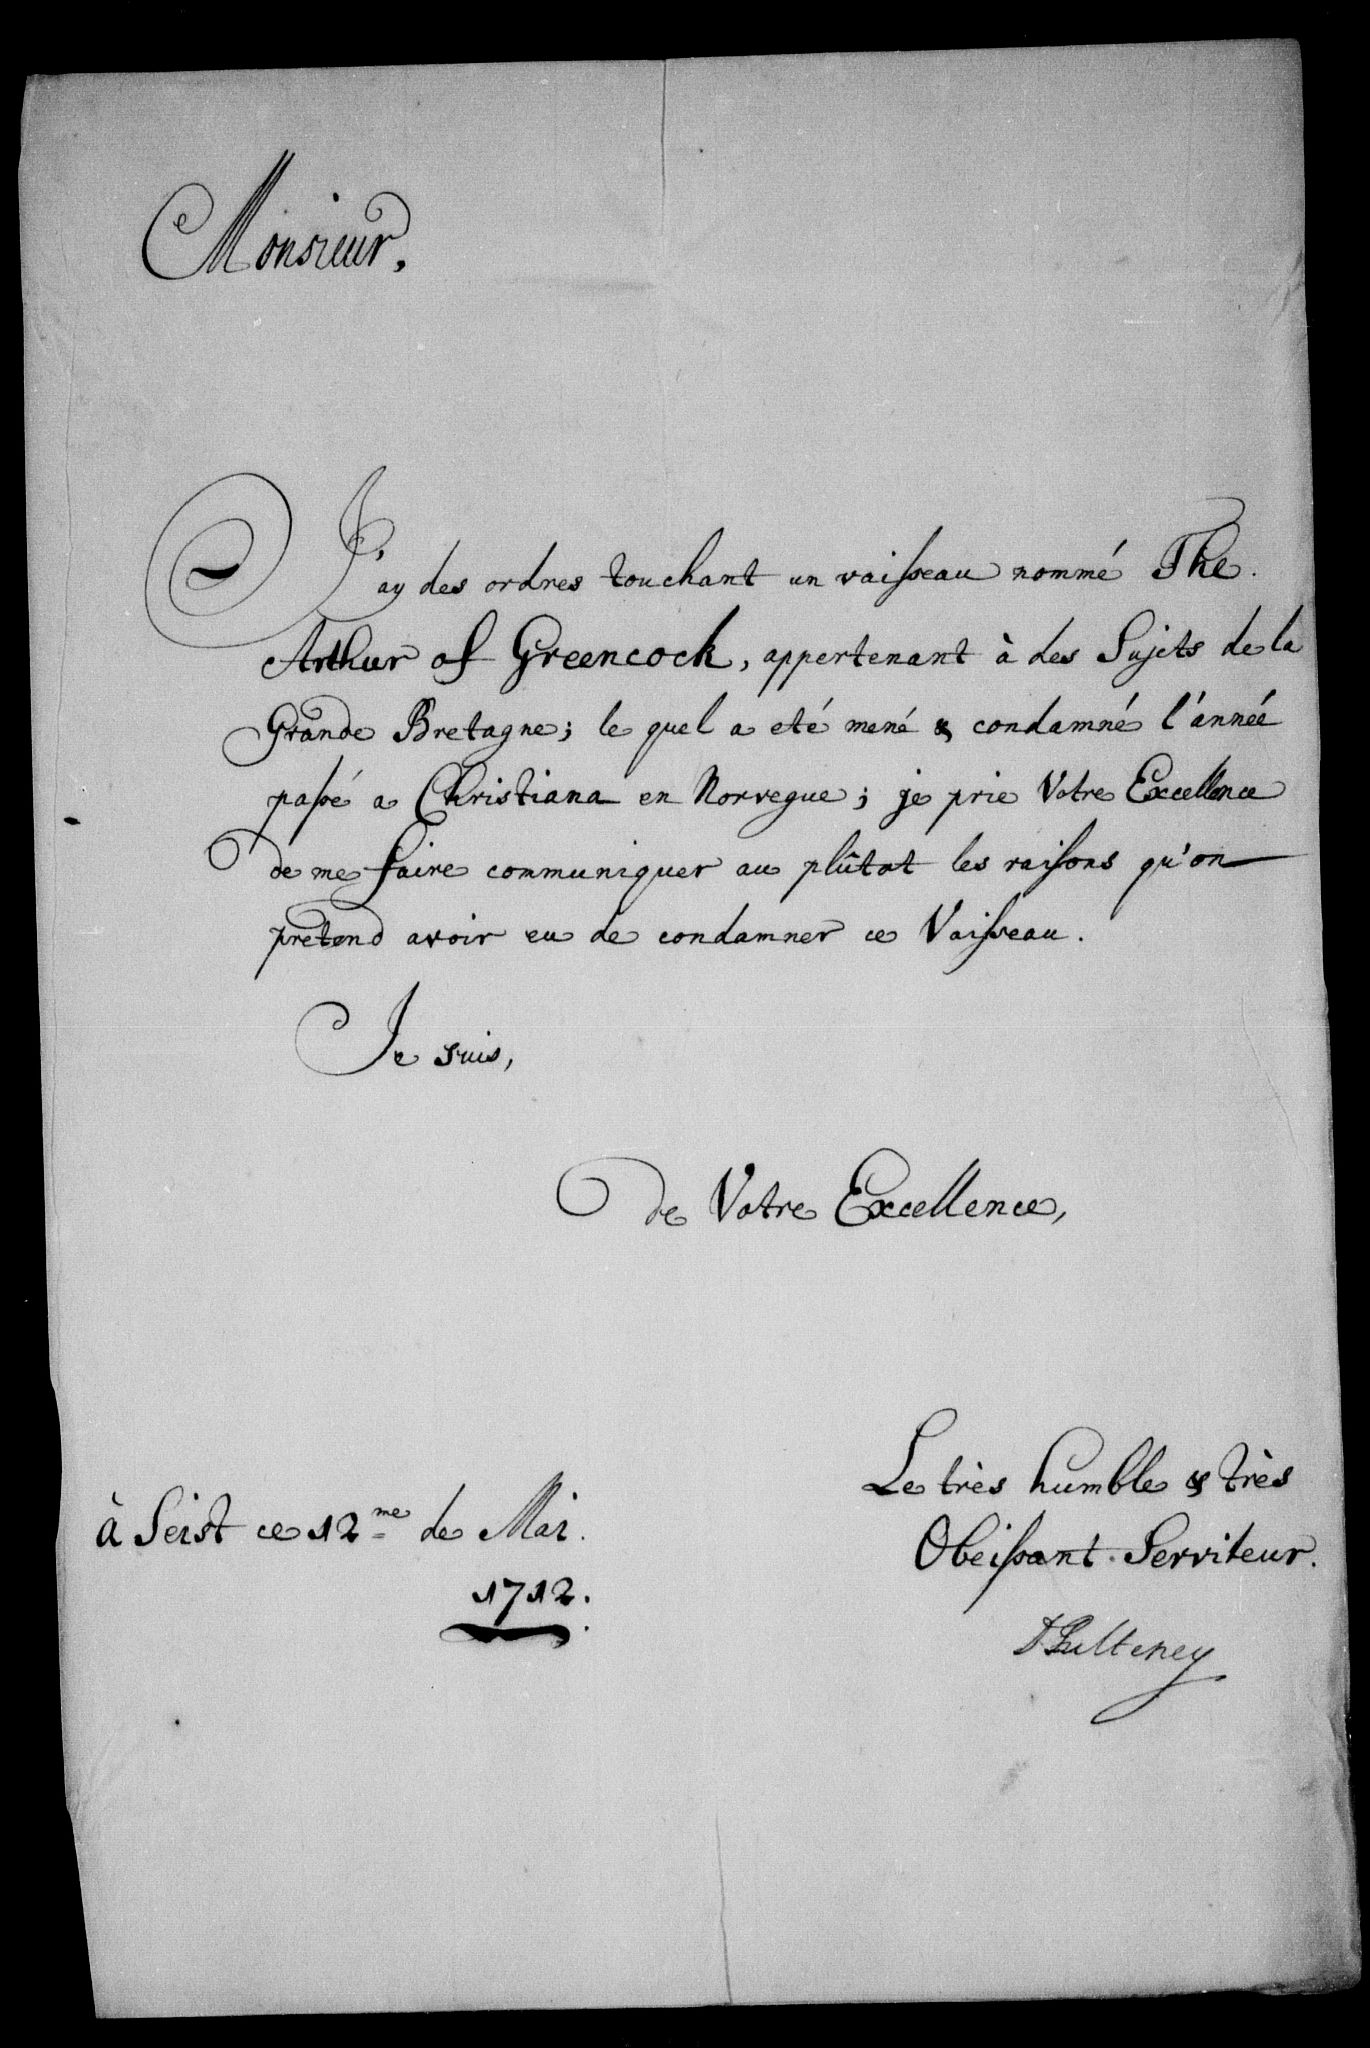 Monsieur,
J'ay des ordres touchant un vaisseau nommé The
Arthur of Greencock, appertenant à des Sujets de la
Grande Bretagne; le quel a eté mené & condamné l'année
passé a Christiana en Norvegue; je prie Votre Excellence
de me faire communiquer au plûtot les raisons qu'on
pretend avoir eu de condamner ce Vaisseau.
Je suis,
de Votre Excellence,
Le très humble & très
Obeissant Serviteur.
DPulteney
à Seist ce 12me de Mai.
1712.